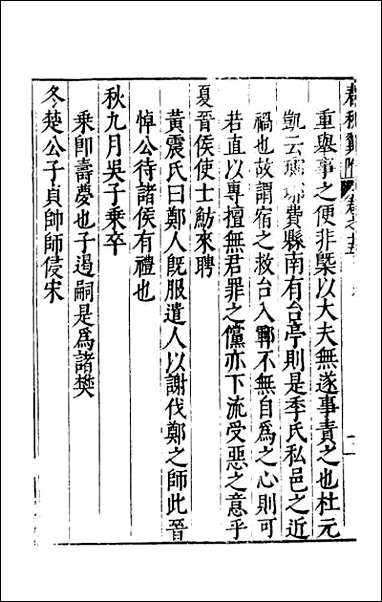 重與事之便非槩以大夫無遂事責之也杜元
凱云瑯琊費縣南有台亭則是季氏私邑之近
禍也故謂宿之救台入鄆不無自爲之心則可
若直以專擅無君罪之儻亦下流受惡之意乎
夏晉侯使士魴來聘
黃震氏曰鄭人旣服遣人以謝伐鄭之師此晉
悼公待諸侯有禮也
秋九月吳子乗卒
乗卽壽夢也子遏嗣是爲諸樊
冬楚公子貞帥師侵宋